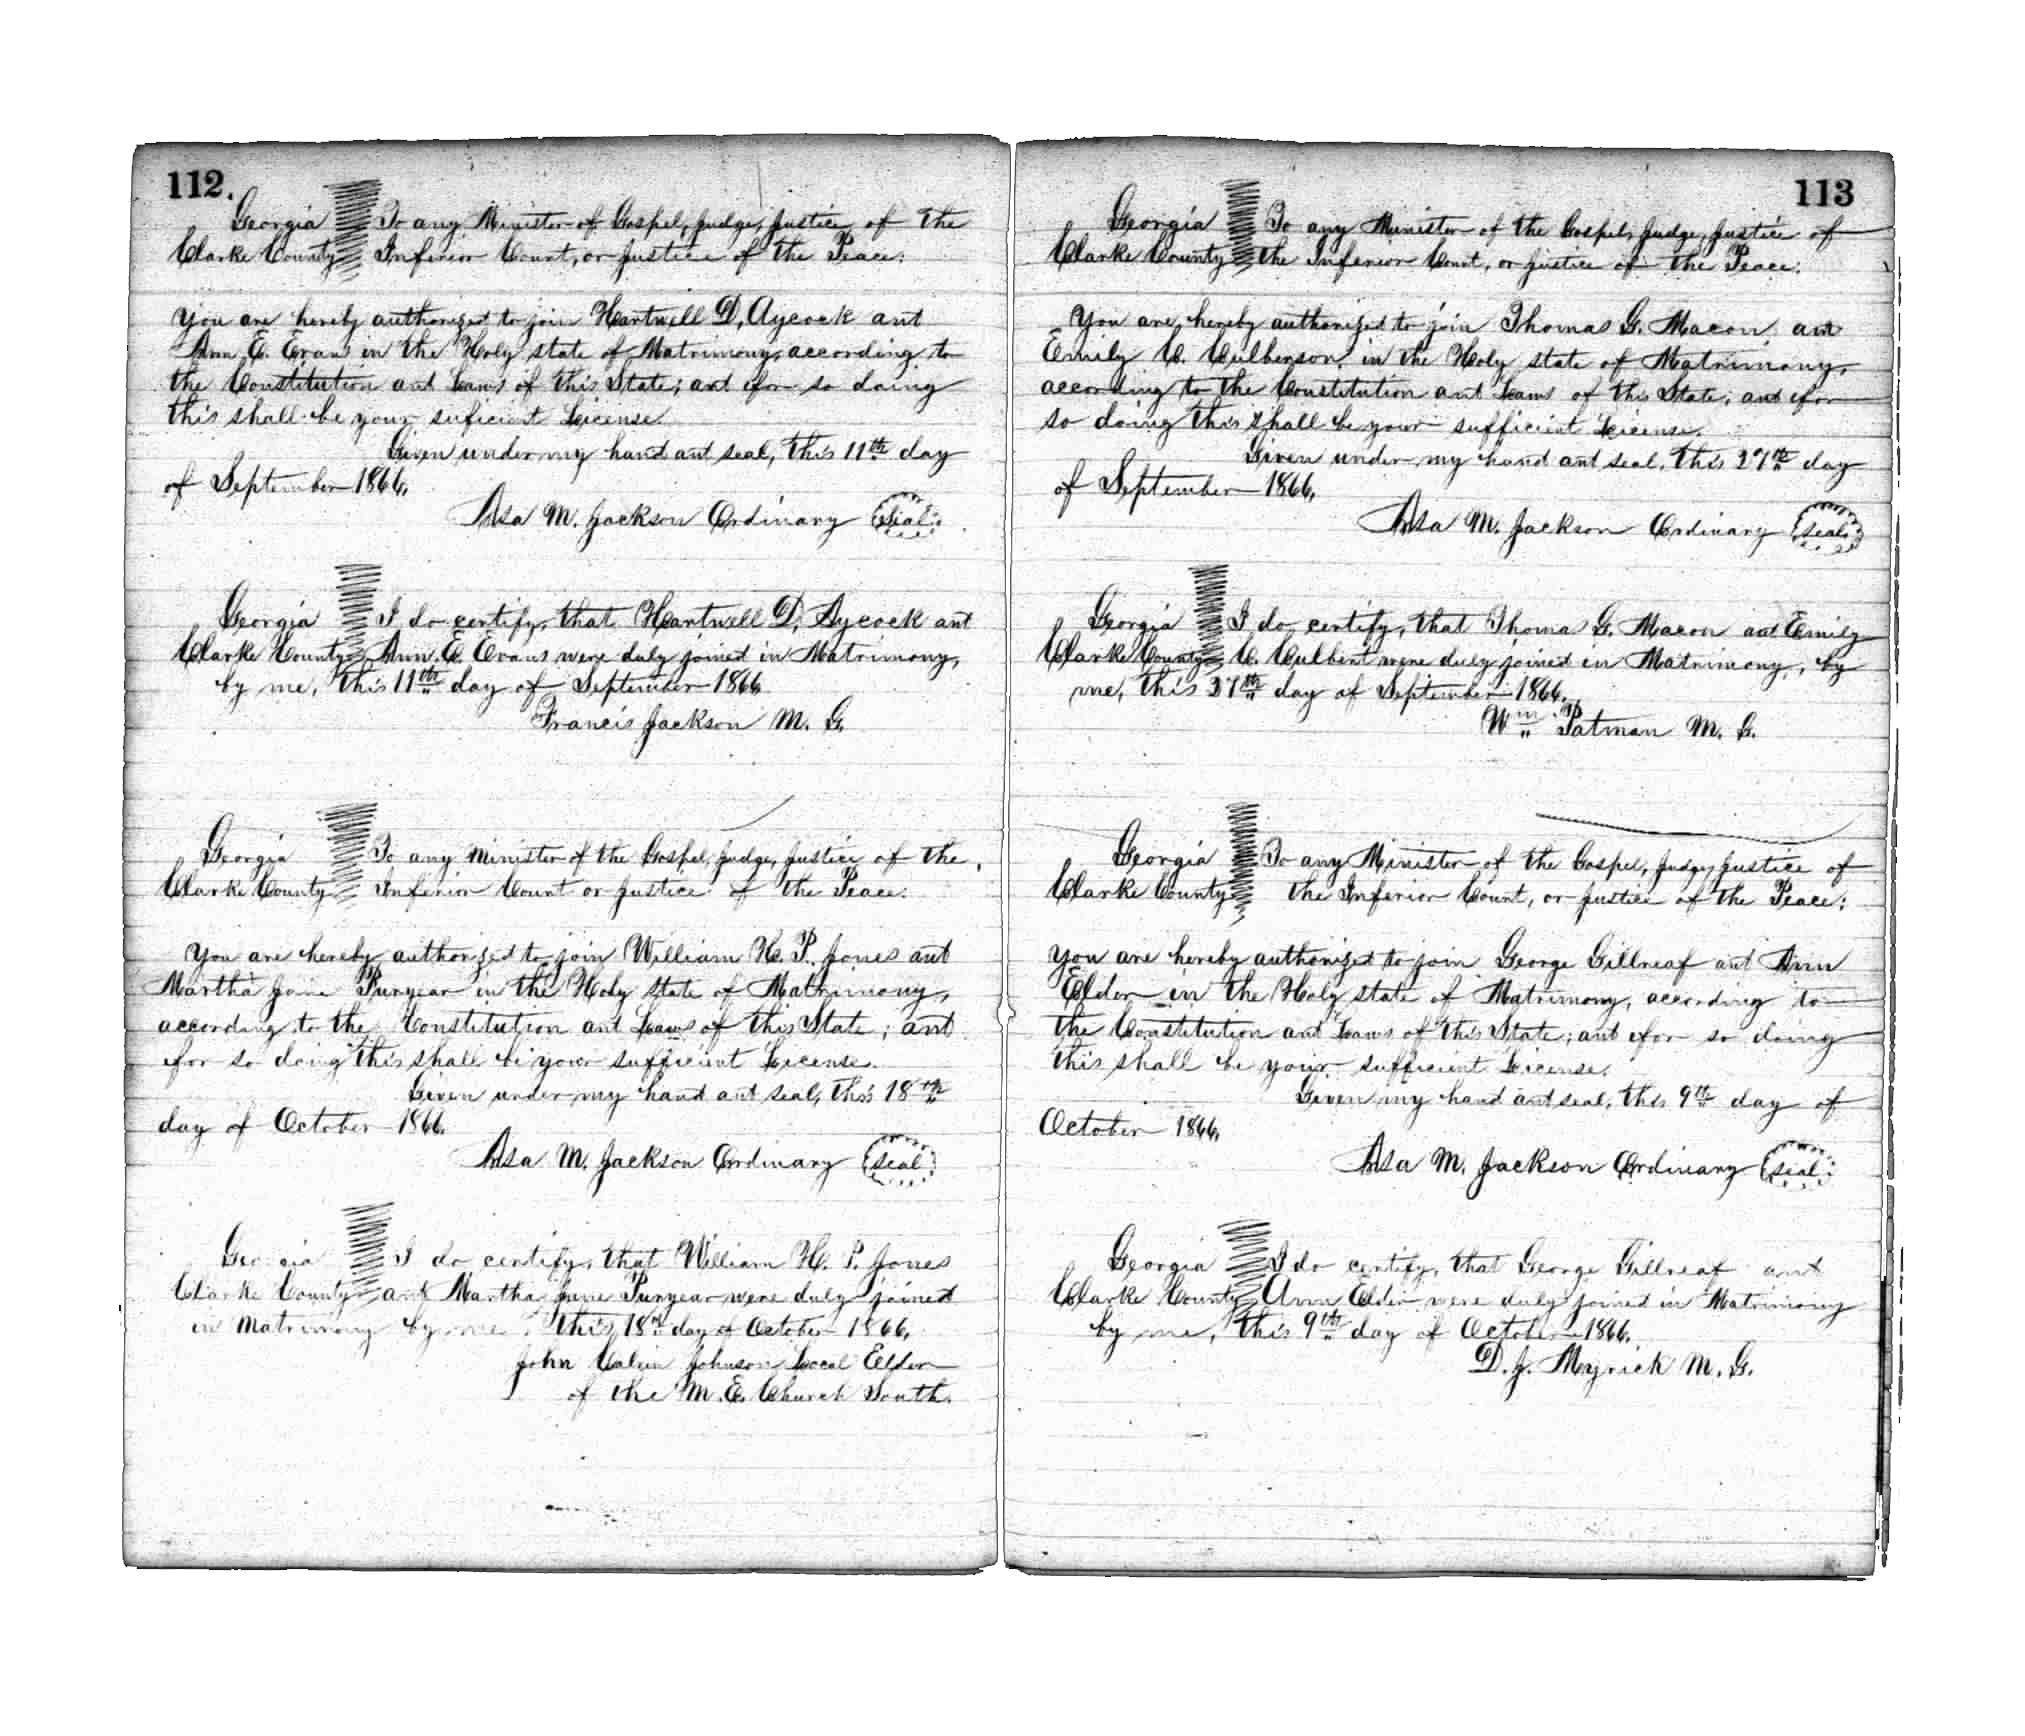 112.
Georgia To any Minister of Gospel, Judge, Justice of the
Clarke County Inferior Court, or Justice of the Peace:
You are hereby authorized to join Hartwell D. Aycock and
Ann E. Evans in the Holy state of Matrimony, according to
the Constitution and Laws of this State; and for so doing
this shall be your suficient License.
Given under my hand and seal, this 11th day
of September 1866.
Asa M. Jackson Ordinary seal
Georgia I do certify, that Hartwell D. Aycock and
Clarke County Ann. E. Evans were duly joined in Matrimony,
by me, this 11th day of September 1866
Francis Jackson M. G.
Georgia To any Minister of the Gospel, Judge, Justice of the
Clarke County Inferior Court or Justice of the Peace.
You are hereby authorized to join William H. P. Jones and
Martha Jane Puryear in the Holy state of Matrimony,
according to the Constitution and Laws of this State; and
for so doing this shall be your sufficient License.
Given under my hand and seal, this 18th
day of October 1866.
Asa M. Jackson Ordinary seal
Georgia I do certify, that William H. P. Jones
Clarke County and Martha Jane Puryear were duly joined
in Matrimony by me, this 18th day of October 1866.
John Calvin Johnson Local Elder
of the M. E. Church South.
113
Georgia To any Minister of the Gospel, Judge, Justice of
Clarke County the Inferior Court, or Justice of the Peace:
You are hereby authorized to join Thomas G. Macon and
Emily C. Culberson in the Holy state of Matrimony,
according to the Constitution and Laws of this State; and for
so doing this shall be your sufficient License.
Given under my hand and seal, this 27th day
of September 1866.
Asa M. Jackson Ordinary seal
Georgia I do certify, that Thomas G. Macon and Emily
Clarke County C. Culbert were duly joined in Matrimony, by
me, this 27th day of September 1866.
Wm Patman M. G.
Georgia To any Minister of the Gospel, Judge, Justice of
Clarke County the Inferior Court, or Justice of the Peace:
You are hereby authorized to join George Gillreaf and Ann
Elder in the Holy state of Matrimony, according to
the Constitution and Laws of this State; and for so doing
this shall be your sufficient License.
Given my hand and seal, this 9th day of
October 1866.
Asa M. Jackson Ordinary seal
Georgia I do certify, that George Gillreaf and
Clarke County Ann Elder were duly joined in Matrimony
by me, this 9th day of October 1866.
D. J. Myrick M. G.